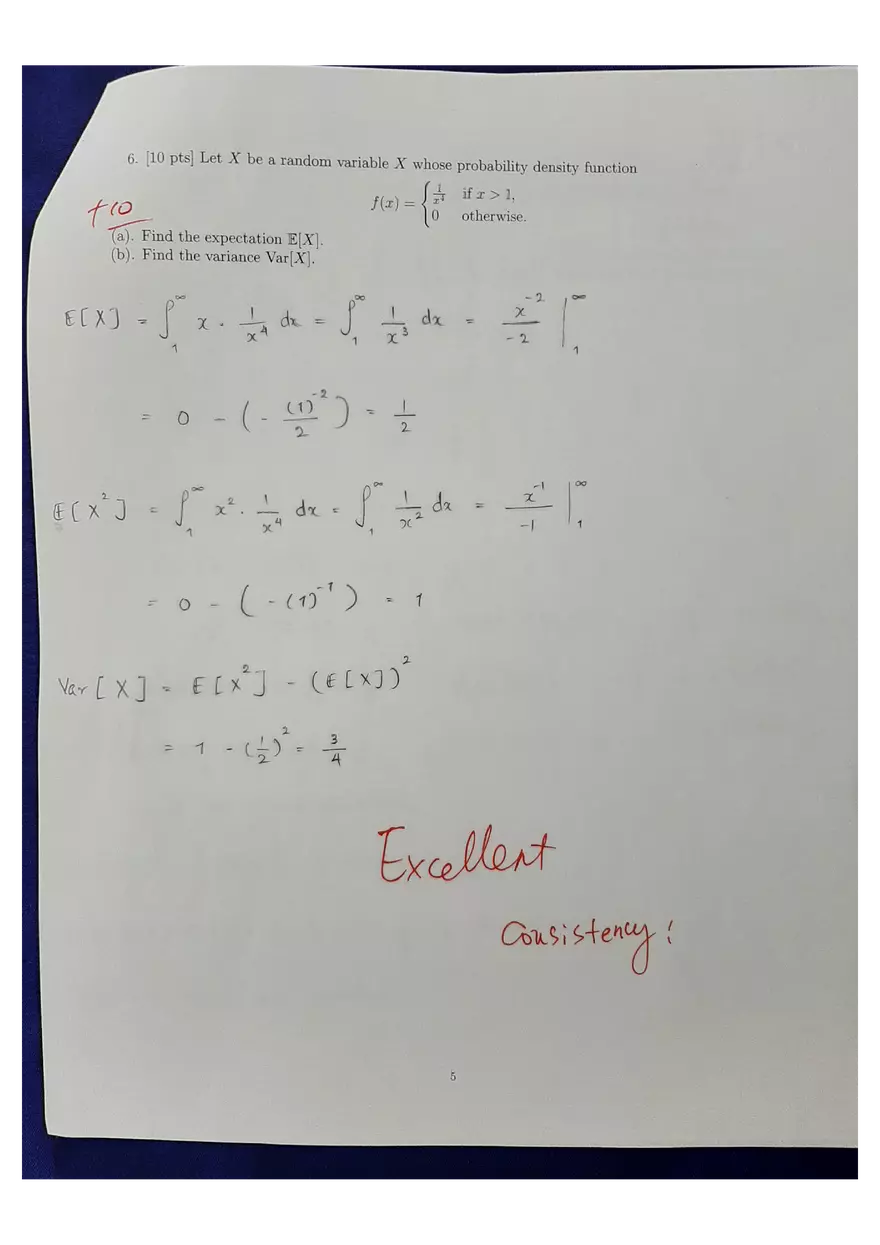 6. [10 pts] Let X be a random variable X whose probability density function
f(x) = { 1/x⁴ if x > 1,
0 otherwise.
+10
(a). Find the expectation 𝔼[X].
(b). Find the variance Var[X].
E[X] = ∫₁^∞ x · 1/x⁴ dx = ∫₁^∞ 1/x³ dx = x⁻²/-2 |₁^∞
= 0 - (- (1)⁻²/2) = 1/2
E[X²] = ∫₁^∞ x² · 1/x⁴ dx = ∫₁^∞ 1/x² dx = x⁻¹/-1 |₁^∞
= 0 - (-(1)⁻¹) = 1
Var[X] = E[X²] - (E[X])²
= 1 - (1/2)² = 3/4
Excellent
Consistency!
5